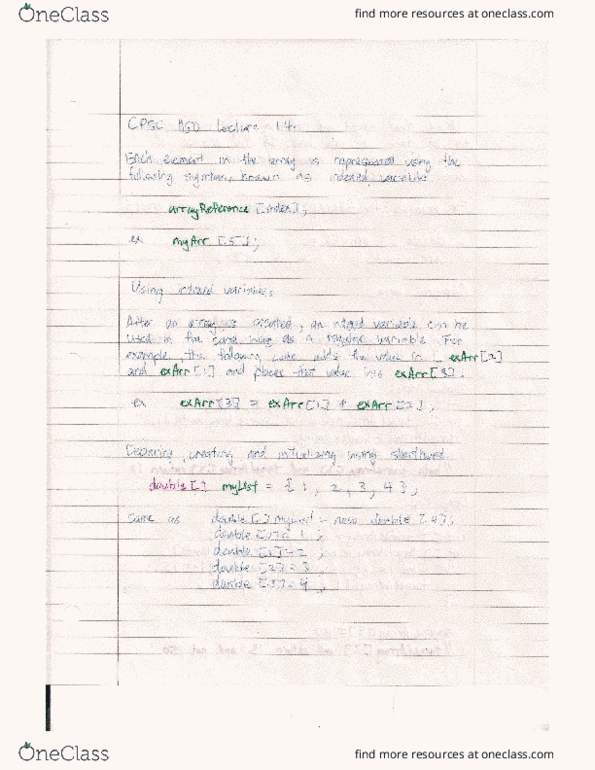 OneClass
find more resources at oneclass.com
Lecture 14
Each element in the array is represented using the
following syntax, known as indexed variable
arrayReference [index];
ex myArr [5];
Using indexed variables
After an array is created, an indexed variable can be
used in the same way as a regular variable. For
example, the following code adds the value in exArr[2]
and exArr[1] and places that value into exArr[3].
ex exArr[3] = exArr[1] + exArr[2];
Declaring, creating and initializing using shorthand
double[] myList = {1, 2, 3, 4};
Same as double[] myList = new double [4];
double [0] = 1;
double [1] = 2;
double [2] = 3;
double [3] = 4;
OneClass
find more resources at oneclass.com